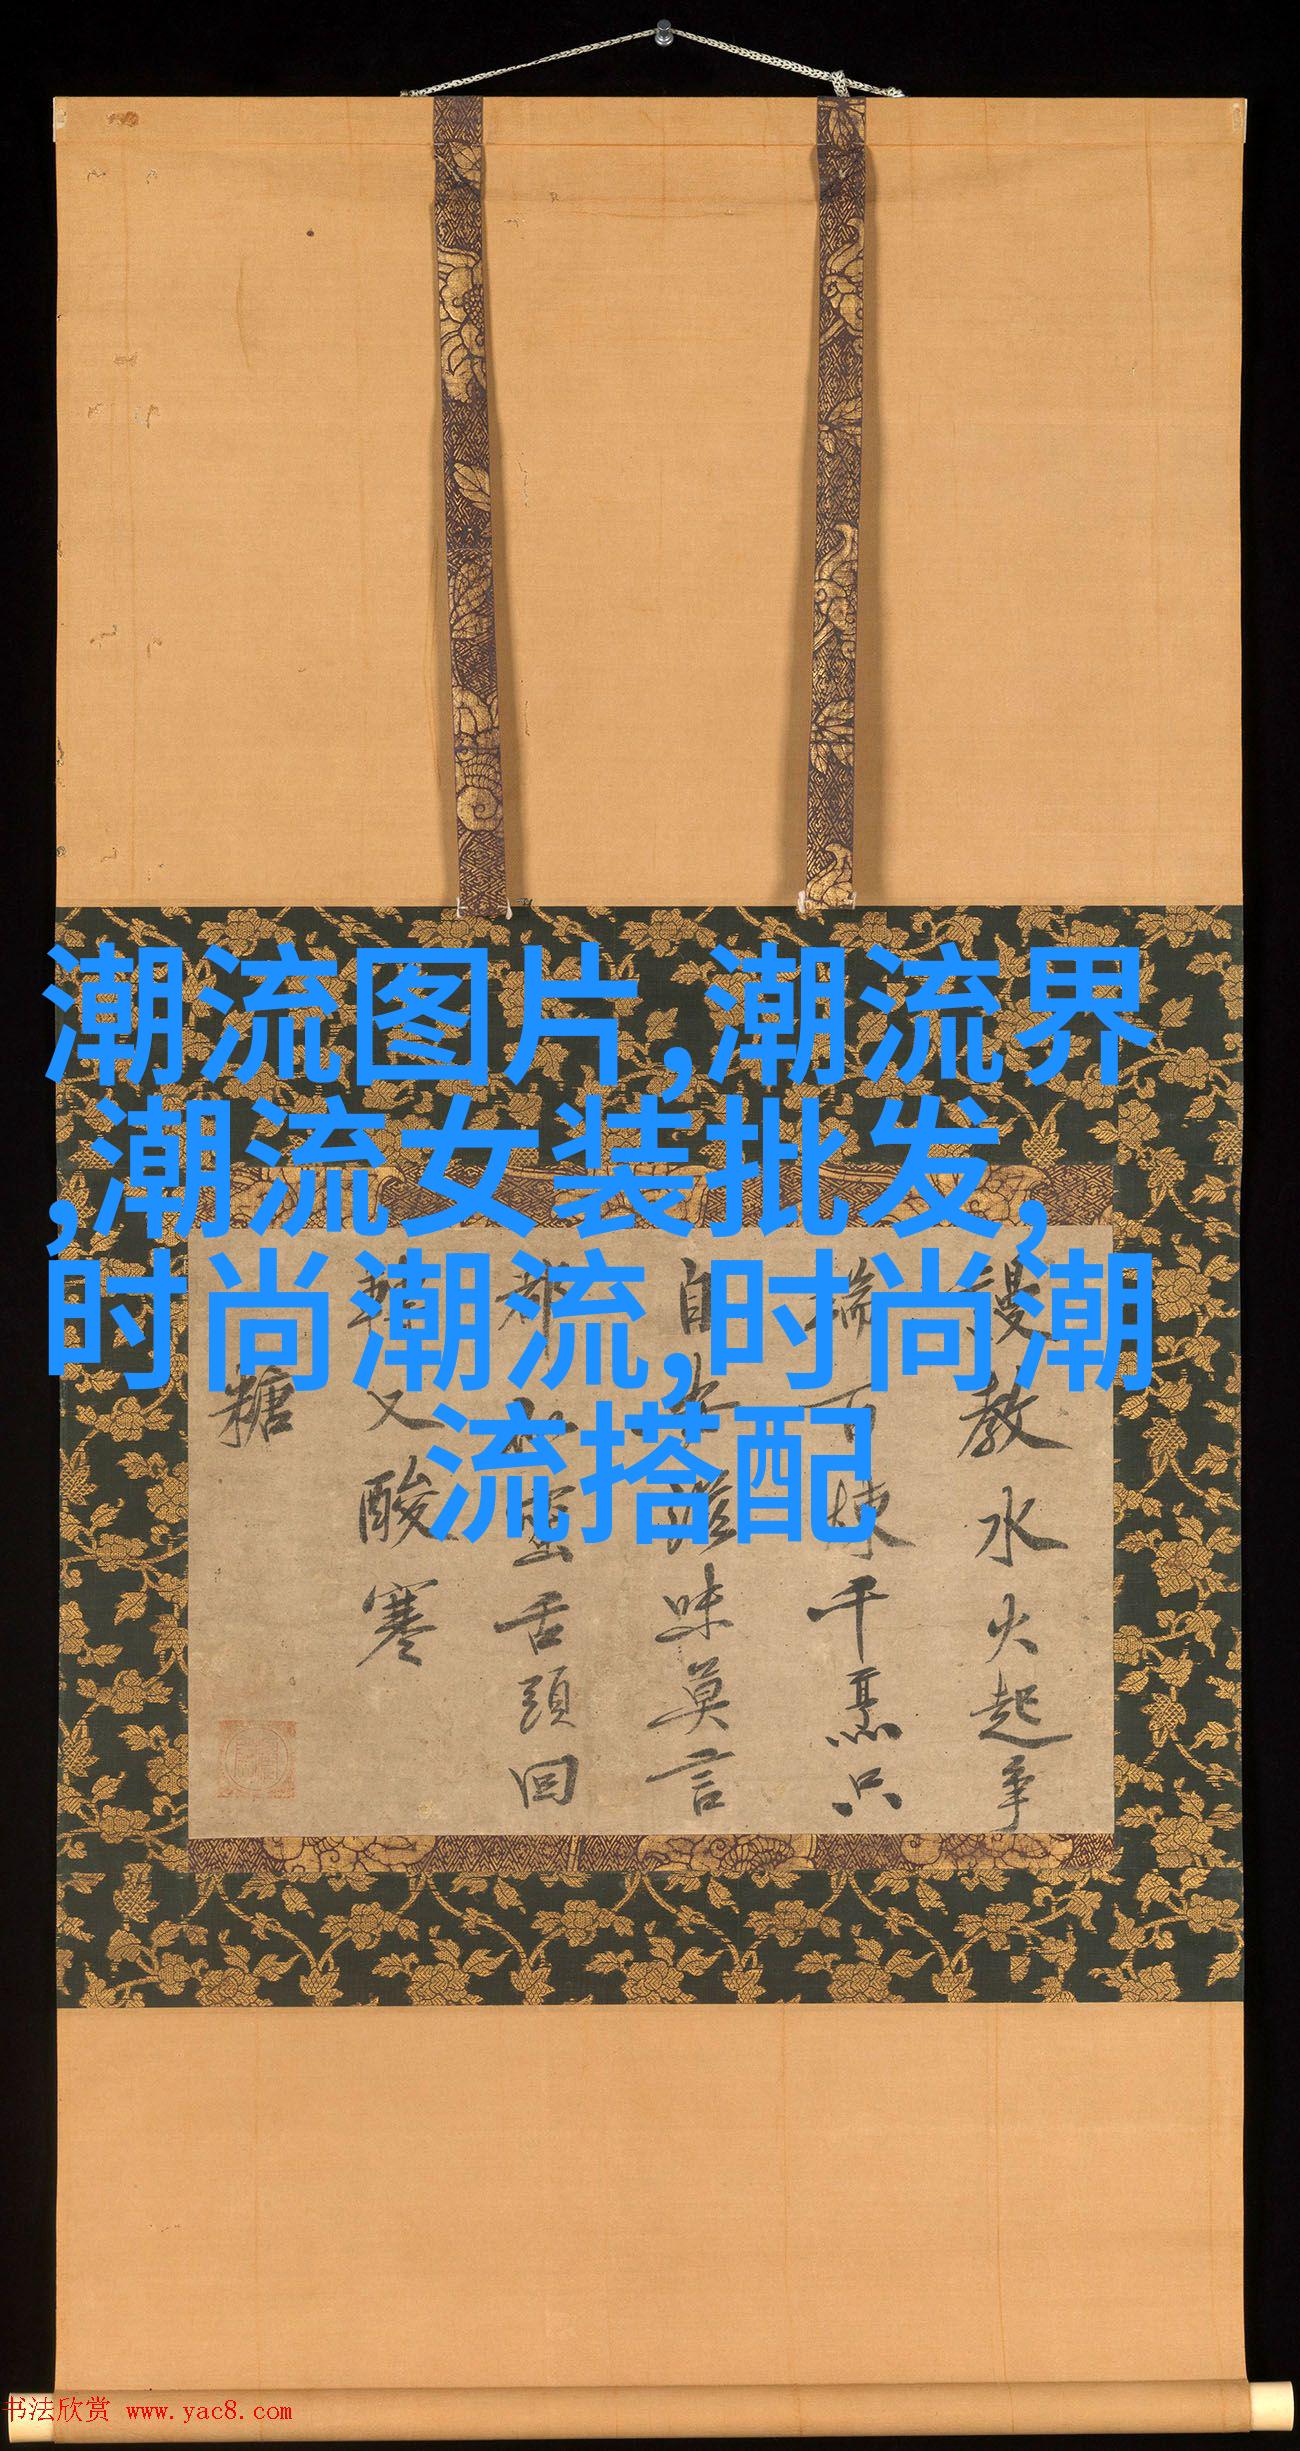 潮流图片,潮流界
,潮流女装批发,
时尚潮流,时尚潮
流搭配
謾教水火起争
瑞百煉千烹只
自 滋味莫言
都 蜜舌頭回
幹又酸寒
糖
书法欣赏 www.yac8.com